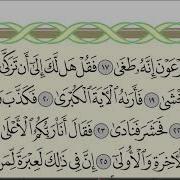 رْعَوْنَ إِنَّهُۥ طَغَىٰ ١٧ فَقُلْ هَل لَّكَ إِلَىٰٓ أَن تَزَكَّىٰ
خْشَىٰ ١٩ فَأَرَىٰهُ ٱلْءَايَةَ ٱلْكُبْرَىٰ ٢٠ فَكَذَّبَ
٢٢ فَحَشَرَ فَنَادَىٰ ٢٣ فَقَالَ أَنَا۠ رَبُّكُمُ ٱلْأَعْلَىٰ
لْءَاخِرَةِ وَٱلْأُولَىٰٓ ٢٥ إِنَّ فِى ذَٰلِكَ لَعِبْرَةً لِّمَن